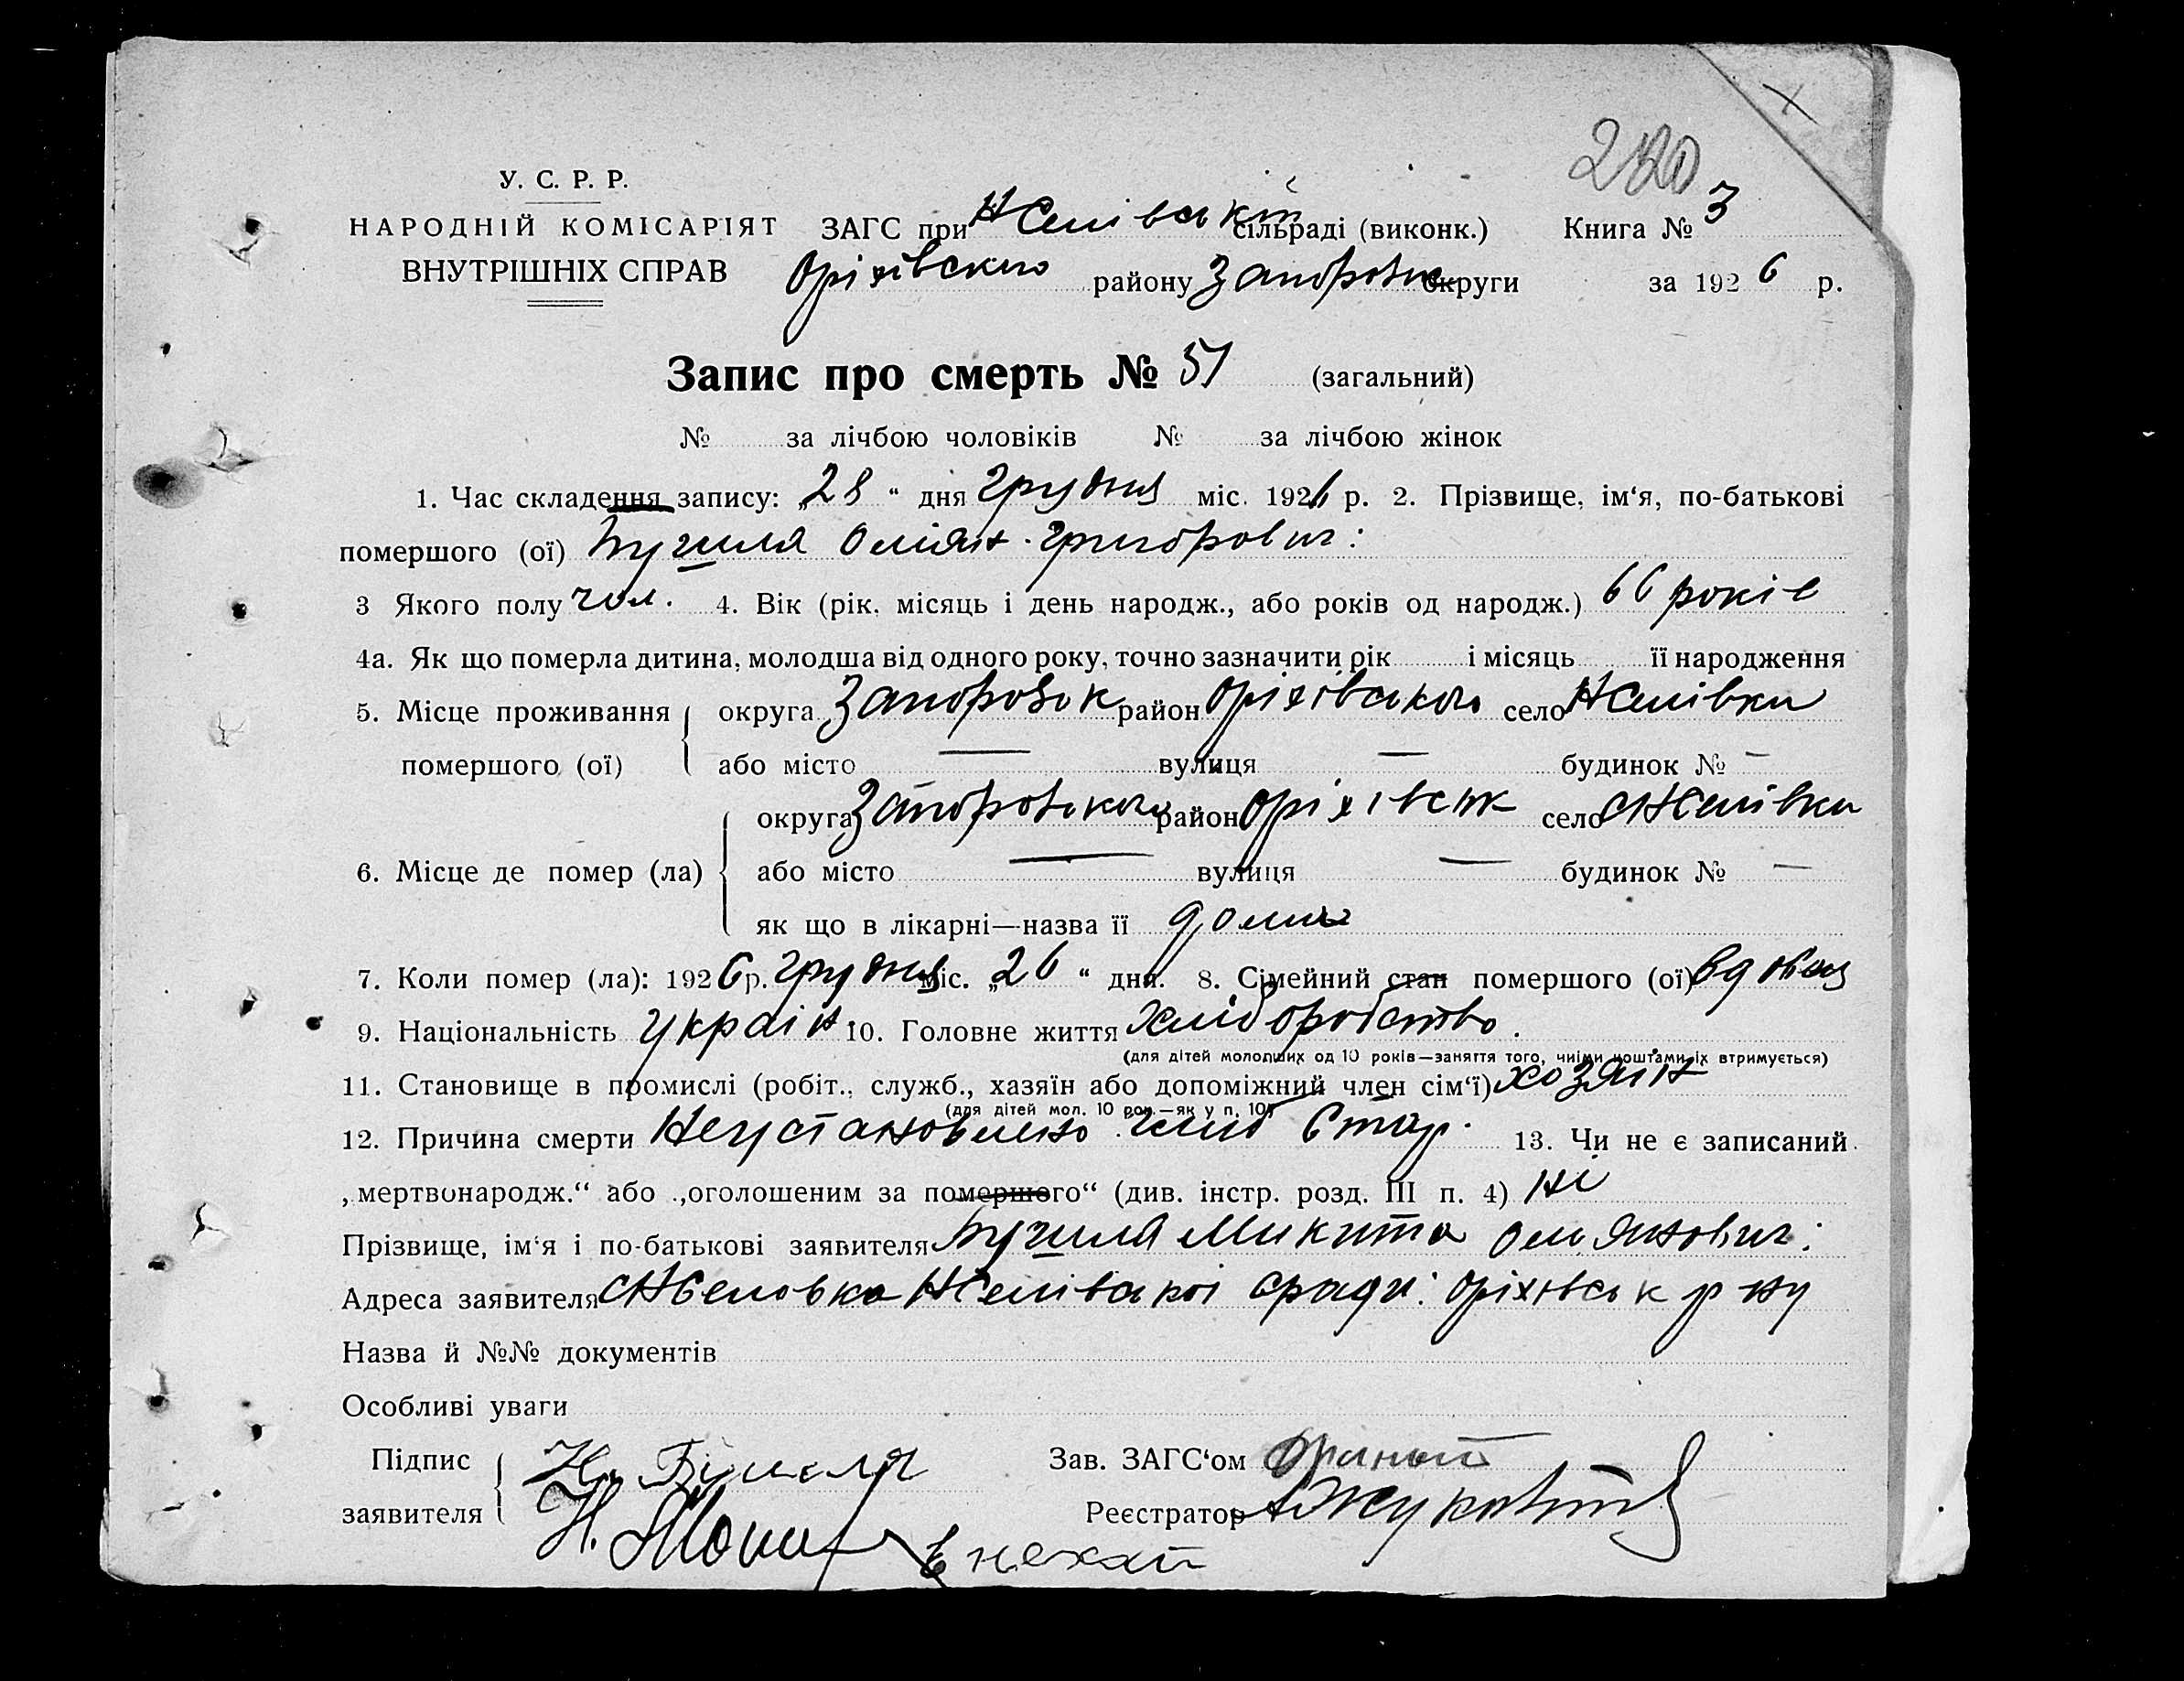 220
У. С. Р. Р.
НАРОДНІЙ КОМІСАРІЯТ
ВНУТРІШНІХ СПРАВ
ЗАГС при сільраді (виконк.) Книга № 3
Оріхівского району Запорізьк округи за 1926 р.
Запис про смерть № 51 (загальний)
№ за лічбою чоловіків № за лічбою жінок
1. Час складення запису: „28“ дня грудня міс. 1926 р. 2. Прізвище, ім‘я, по-батькові
помершого (ої) Омілян Григорович
3 Якого полу чол. 4. Вік (рік, місяць і день народж., або років од народж.) 66 років
4а. Як що померла дитина, молодша від одного року, точно зазначити рік і місяць її народження
5. Місце проживання помершого (ої) округа район Оріхівського село
або місто — вулиця — будинок № —
6. Місце де помер (ла) округа район Оріхівськ село
або місто — вулиця — будинок № —
як що в лікарні—назва її дома
7. Коли помер (ла): 1926 р. грудня міс. „26“ дня. 8. Сімейний стан помершого (ої) вдовец
9. Національність україн. 10. Головне життя хліборобство.
(для дітей молодших од 10 років—заняття того, чиїми коштами їх втримується)
11. Становище в промислі (робіт., служб., хазяїн або допоміжний член сім‘ї) хозяїн
(для дітей мол. 10 рок.—як у п. 10)
12. Причина смерти Неустановлено 13. Чи не є записаний
„мертвонародж.“ або „оголошеним за помершого“ (див. інстр. розд. III п. 4) ні
Прізвище, ім‘я і по-батькові заявителя Микита
Адреса заявителя сради Оріхівськ р-ну
Назва й №№ документів
Особливі уваги
Підпис заявителя
Зав. ЗАГС‘ом
Реєстратор